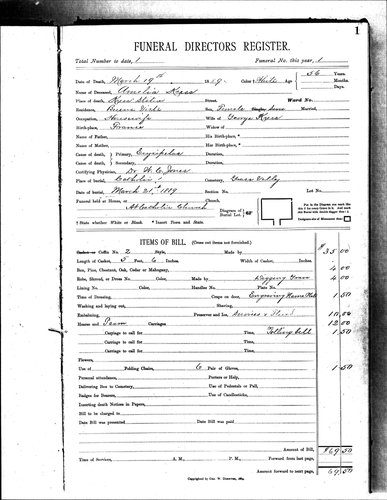 1
FUNERAL DIRECTORS REGISTER.
Total Number to date, 1 Funeral No. this year, 1
Date of Death, March 19th 1889. Color † White Age 56 Years.
Months
Days.
Name of Deceased, Amelia Kress
Place of death, Street, Ward No.
Residence, Buena Vista Sex, Female
Occupation, Housewife Wife of George Kress
Birth-place, France Widow of
Name of Father, His Birth-place, *
Name of Mother, Her Birth-place, *
Cause of death: Primary, Erysipelas Duration,
Cause of death: Secondary, Duration,
Certifying Physician, Dr. W. C. Jones
Place of burial, Catholic Cemetery, Grass Valley
Date of burial, March 21st 1889 Section No. Lot No.
Funeral held at Home, or Church.
At Catholic Church
Diagram of Burial Lot.
† State whether White or Black. * Insert Town and State.
ITEMS OF BILL. (Cross out items not furnished.)
Casket or Coffin No. 2 Style, Made by $ 35.00
Length of Casket, 5 Feet, 6 In. Width of Casket, Inches.
Box, Pine, Chestnut, Oak, Cedar or Mahogany, 4 00
Robe, Shroud, or Dress No. Color, Made by 4 00
Lining No. Color, Handles No. Plate No.
Time of Dressing, Crape on door, Engraving Name Plate 1 50
Washing and laying out, Shaving,
Embalming, Preserver and Ice, Services 10 00
Hearse and Team Carriages 12 00
Carriage to call for Time, Tolling bell 1 50
Carriage to call for Time,
Carriage to call for Time,
Flowers,
Use of Folding Chairs, 6 Pair of Gloves, 1 50
Personal attendance, Porters or Help,
Delivering Box to Cemetery, Use of Pedestals or Pall,
Badges for Bearers, Use of Candlesticks,
Inserting death Notices in Papers,
Bill to be charged to
Date Bill was presented Date Bill was paid
Amount of Bill, $ 69 50
Time of Services, A. M., P. M. Forward from last page,
Amount forward to next page, 69 50